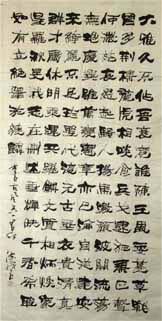 大雅久不作吾衰竟誰陳王風委蔓草戰
國多荊榛龍虎相啖食兵戈逮狂秦正聲
何微茫哀怨起騷人揚馬激頹波開流蕩
無垠廢興雖萬變憲章亦已淪自從建安
來綺麗不足珍聖代復元古垂衣貴清真
群才屬休明乘運共躍鱗文質相炳煥眾
星羅秋旻我志在刪述垂輝映千春希聖
如有立絕